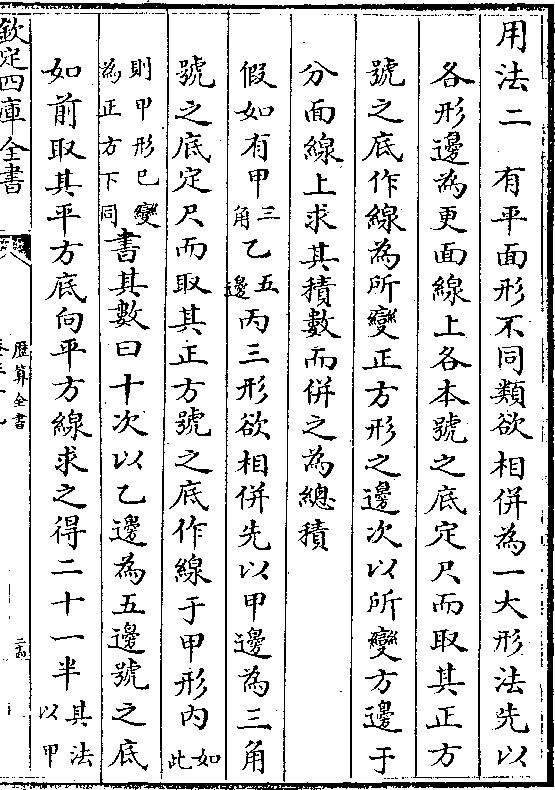 用法二　有平面形不同類欲相併為一大形法先以
各形邊為更面線上各本號之底定尺而取其正方
號之底作線為所變正方形之邊次以所變方邊于
分面線上求其積數而併之為總積
假如有甲三角乙五邊丙三形欲相併先以甲邊為三角
號之底定尺而取其正方號之底作線于甲形内如此
則甲形已變為正方下同書其數曰十次以乙邊為五邊號之底
如前取其平方底向平方線求之得二十一半其法以甲
欽定四庫全書
歴算全書